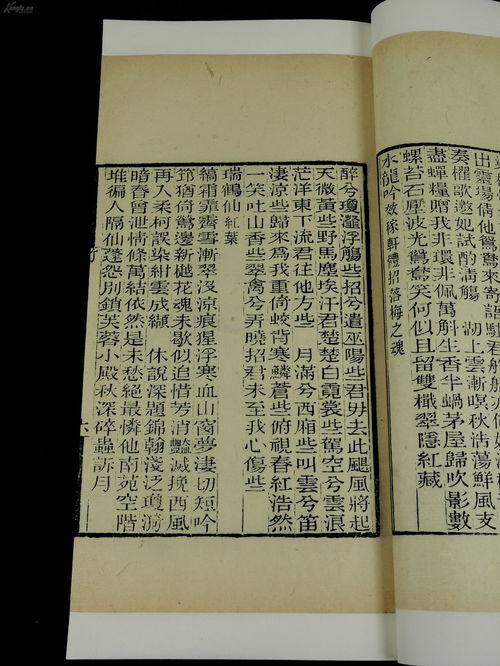 出雲場倩他鴛鴦來寄語駐君
奏櫂歌邀妃試酌清觴 湖上雲漸暝秋浩蕩鮮風支
盡蟬糧贈我非環非佩萬斛生香半蝸茅屋歸吹影數
螺苔石壓波光鴛鴦笑何似且留雙檝翠隱紅藏
水龍吟 效稼軒體招落梅之魂
醉兮瓊瀣浮觴些招兮遣巫陽些君毋去此颶風將起
天微黃些野馬塵埃汙君楚楚白霓裳些駕空兮雲浪
茫洋東下流君往他方些 月滿兮西廂些叫雲兮笛
淒涼些歸來為我重倚蛟背寒鱗蒼些俯視春紅浩然
一笑吐山香些翠禽兮弄曉招君未至我心傷些
瑞鶴仙 紅葉
縞霜霏霽雪漸翠沒涼痕猩浮寒血山窗夢淒切短吟
筇猶倚鶯邊新樾花魂未歇似追惜芳消豔滅挽西風
再入柔柯誤染紺雲成纈 休說深題錦翰淺泛瓊漪
暗春曾泄情條萬結依然是未愁絕最憐他南苑空階
堆徧人隔仙蓬怨別鎖芙蓉小殿秋深碎蟲訴月
六